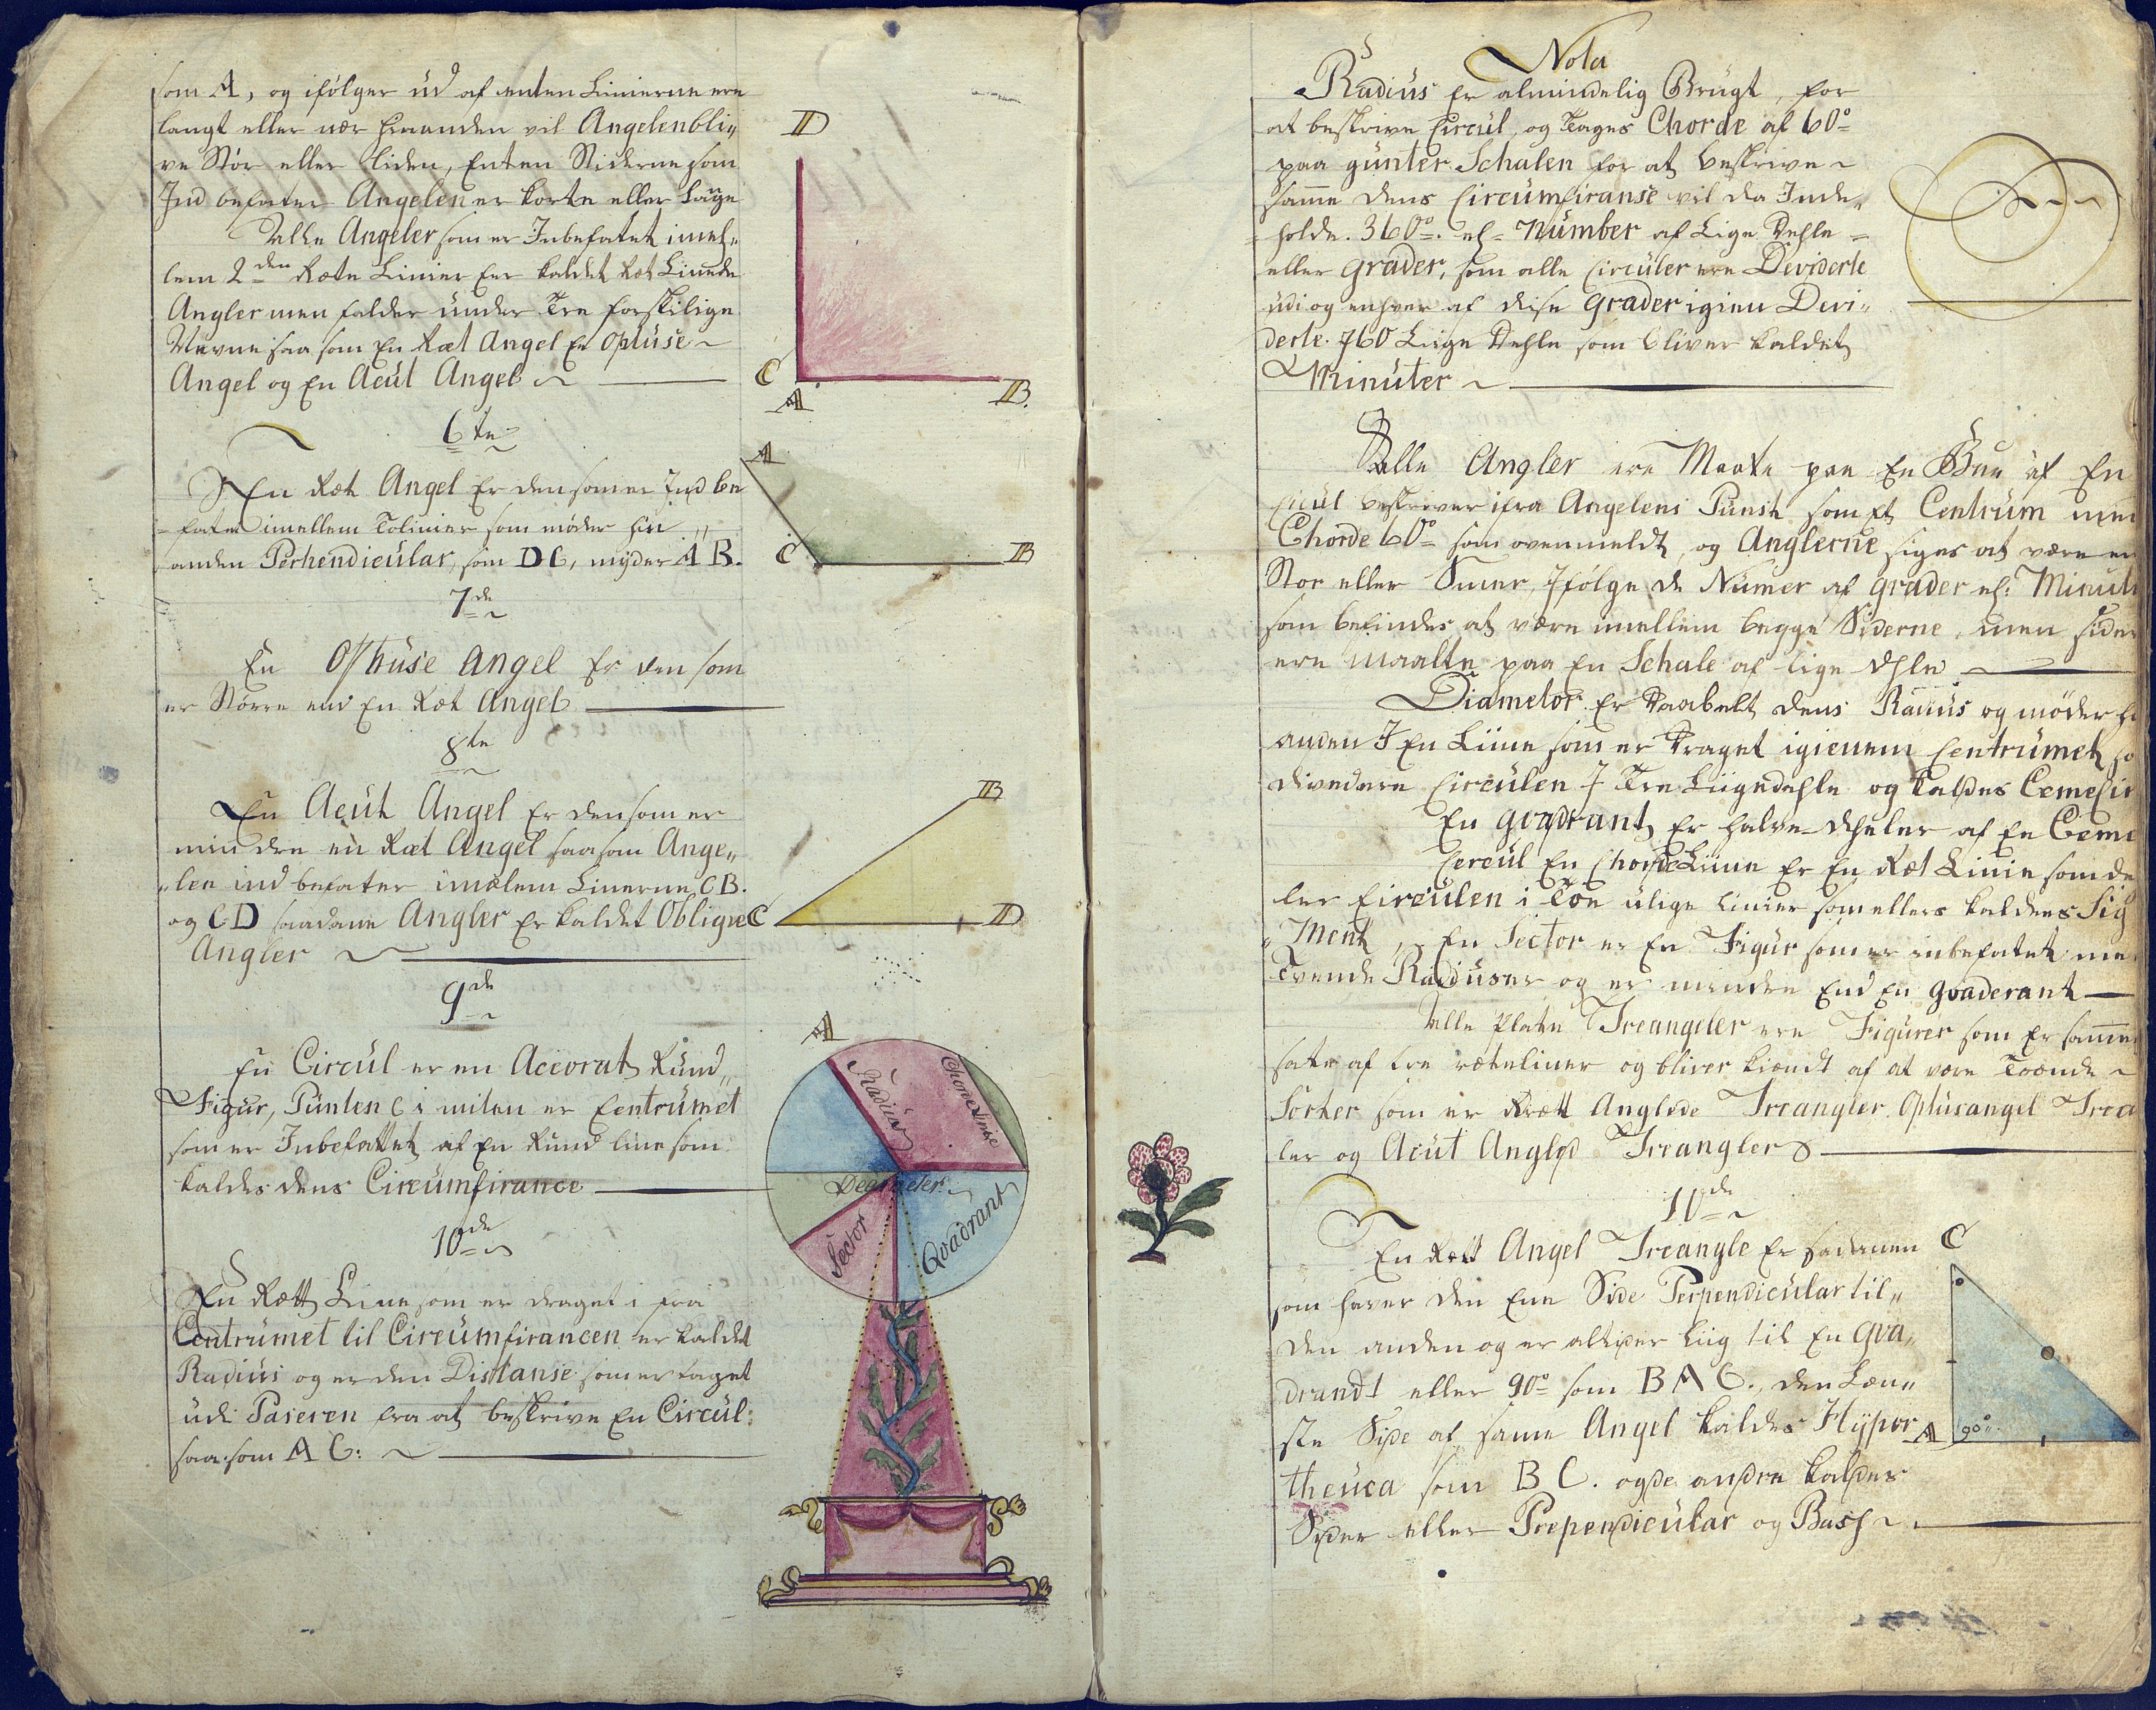 som A, og ifølger ud af enten Linierne ere
langt eller nær fraanden vil Angelenbli„
ve Stør eller liden, Enten Siderne som
Ind befater Angelen er korte eller lange
Alle Angeler som er Inbefatet imel„
lem 2den Rete Linier Er kaldet Ret Linede
Angler men falder under Tre forskilige
Navne saa som En Ræt Angel En Optuse
Angel og En Acut Angel
6te
En Ræt Angel Er den som er Ind be
fatet imellem Tolinier som møder hin
anden Perhendicular, som DC, myder AB.
7de
En Obtuse Angel Er den som
er Større end En Ræt Angel
8te
En Acut Angel Er den som er
mindre en Ræt Angel saa som Ange„
„len ind befater imælem Linerne, CB.
og CD saadane Angler Er kaldet Obligve
Angler
9de
En Circul er en Accorat Rund„
Figur, Punten C i miten er Centrumet
som er Inbefattet af En Rund line som
kaldes dens Circumfirance
10de
En Rett Line som er draget i fra
Centrumet til Circumfirancen er kaldet
Radius og er den Distanse som er taget
udi Paseren fra at beskrive En Circul:
saa som A C:
D
C
A
B.
A
C
B
B
C
D
A
Radius
Chorde Linie
Deameter
Sector
Qvadrant
Nota
Radius Er almindelig Brugt, for
at beskrive Circul, og Tages Chorde af 60°
paa gunter Schalen for at beskrive
samme dens Circumfiranse vil da Inde„
holde. 360°. el= Number af Lige Dehle
eller grader, som alle Circuler ere Deviderte
udi og enhver af dise grader igien Devi„
derte. I 60 Liige Dehle som bliver kaldet
Minuter
Alle Angler ere Maate paa En Bue af En
Circul beskrever ifra Angelens Punct som Et Centrum med
Chorde 60° som ovenmeldt, og Anglerne siges at være en
Stor eller Smer, Ifølge de Numer af grader el: Minut
som befindes at være imellem begge Siderne, men sider
ere maalte paa En Schale af lige dehle
Diametor Er Daabelt dens Radius og møder hi
anden I En Liine som er draget igienem Centrumet, so
divedere Circulen I Tre Liigedehle og kaldes Cemecir
En qvadrant Er halve deler af En Ceme
Cercul En Chorde Liine Er En Ræt Linie som de
ler Circulen i Toe ulige linier som ellers kaldens Sig
„Ment, En Sector er En Figur som er inbefatet me
Tvende Radiuser og er mindre End En qvaderant
Alle Plate Treangeler ere Figurer som Er samme
sate af tre reteliner og bliver kiendt af at være Toende
Sorter som er Rætt Anglede Treangler Optusangel Trea
ler og Acut Angled Treangler
10de
En Rett Angel Treangle Er sadanen
som haver den Ene Side Perpendicular til„
den anden og er altider liig til En Qva„
drandt eller 90° som B A C., den Læn„
ste Side af same Angel kaldes Hypor
theuca som B C. og de andre kaldes
Sider eller Prependicular og Bass
C
A
90°